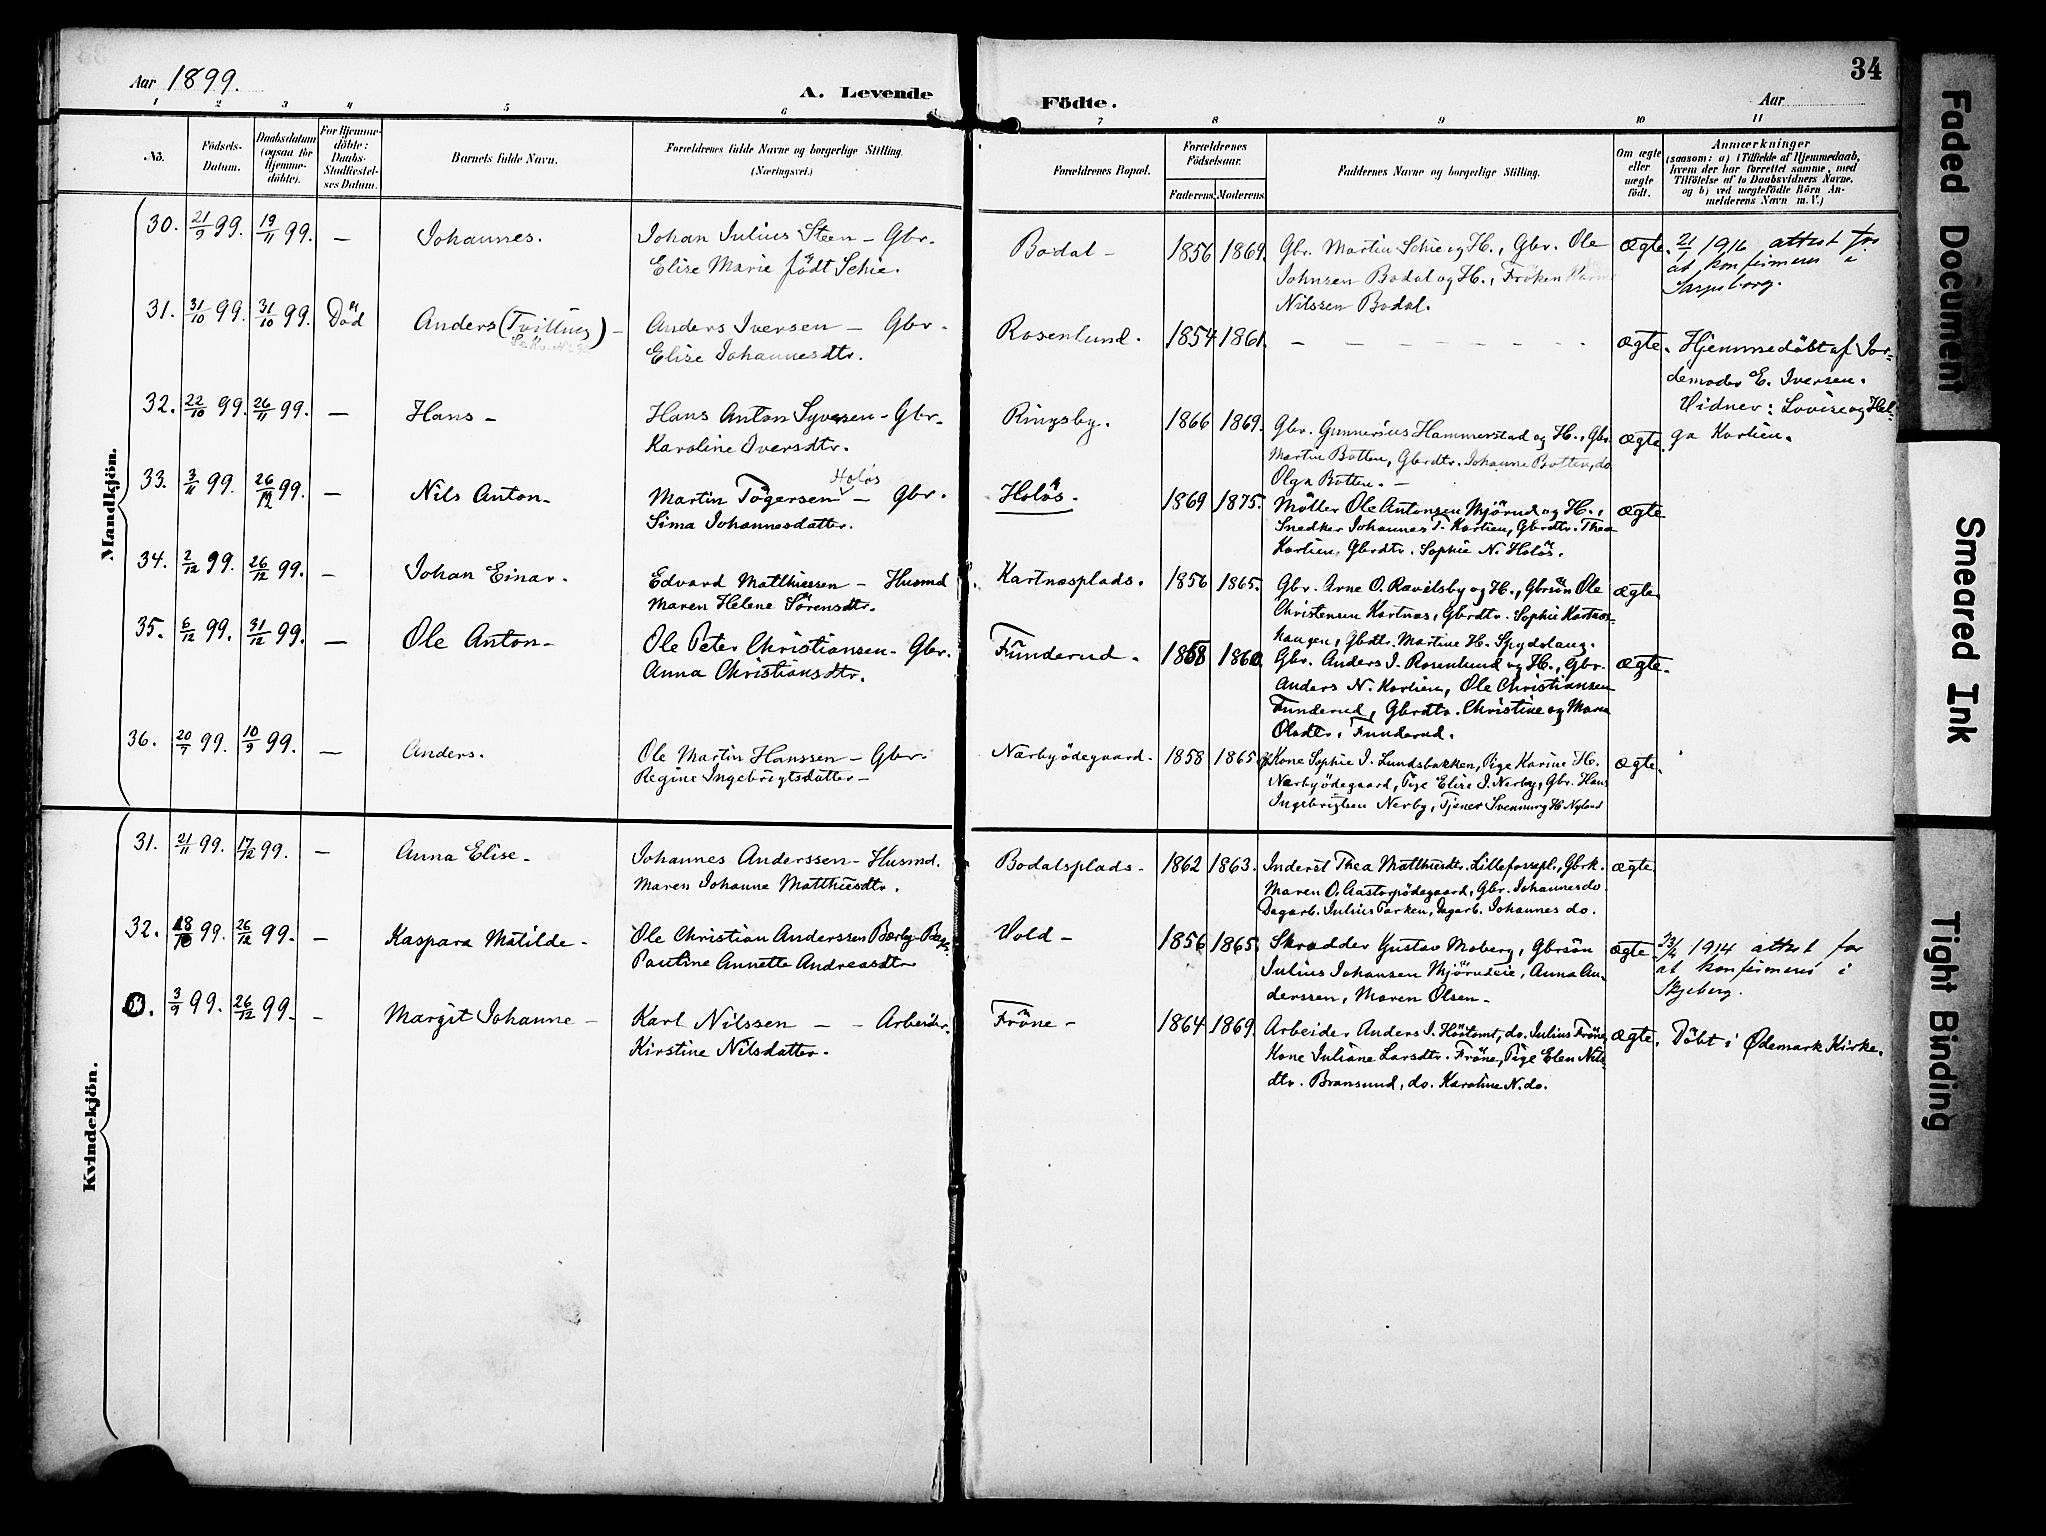 Aar 1899.
A. Levende Födte.
Aar
34
1 2 3 4 5 6 7 8 9 10 11
No.
Födsels-Datum.
Daabsdatum (ogsaa for Hjemmedöbte).
For Hjemmedöbte: Daabs-Stadfæstelses Datum.
Barnets fulde Navn.
Forældrenes fulde Navne og borgerlige Stilling. (Næringsvei.)
Forældrenes Bopæl.
Forældrenes Födselsaar.
Faderens. Moderens.
Faddernes Navne og borgerlige Stilling.
Om ægte eller uægte födt.
Anmærkninger
(saasom: a) i Tilfælde af Hjemmedaab, hvem der har forrettet samme, med Tilföielse af to Daabsvidners Navne, og b) ved uægtefödte Börn Anmelderens Navn m. V.)
Mandkjön.
30. 21/9 99. 19/11 99. — Johannes. Johan Julius Steen — Gbr. Bodal — 1856 1869. Gbr. Martin Schie og H., Gbr. Ole ægte. 21/1 1916 attest for
Elise Marie födt Schie. Johnsen Bodal og H., Fröken at konfirmeres i
Nilssen Bodal. Sarpsborg.
31. 31/10 99. 31/10 99. Död Anders (Tvilling) — Anders Iversen — Gbr. Rosenlund. 1854 1861. — — — — — — — ægte. Hjemmedöbt af Jor-
Elise Johannesdtr. demoder E. Iversen.
Vidner: Lovise og Hel-
32. 22/10 99. 26/11 99. — Hans — Hans Anton Syversen — Gbr. Ringsby. 1866 1869. Gbr. Gunnerius Hammerstad og H., Gbr. ægte. ga Kortien.
Karoline Iversdtr. Martin Botten, Gbrdtr. Johanne Botten, do
Olga Botten. —
33. 3/11 99. 26/12 99. — Nils Anton — Martin Tögersen Holös — Gbr. Holös. 1869 1875. Möller Ole Antonsen Mjörud og H., ægte
Sima Johannesdatter. Snedker Johannes T. Kortien, Gbrdtr. Thea
Kortien, Gbrdtr. Sophie N. Holös.
34. 2/12 99. 26/12 99. — Johan Einar. Edvard Matthiessen — Husmd Kartnæsplads. 1856 1865. Gbr. Arne O. Ravilsby og H., Gbrsön Ole ægte.
Maren Helene Sörensdtr. Christensen Kartnæs, Gbrdtr. Sophie Kartnæs-
haugen, Gbdtr. Martine H. Spydslaug.
35. 6/12 99. 31/12 99. — Ole Anton — Ole Peter Christiansen — Gbr. Funderud. 1858 1860. Gbr. Anders I. Rosenlund og H., Gbr. ægte.
Anna Christiansdtr. Anders N. Kortien, Ole Christiansen
Funderud, Gbrdtr. Christine og Maren
Olsdtr. Funderud.
36. 20/7 99. 10/9 99. — Anders. Ole Martin Hanssen — Gbr. Nærbyödegaard. 1858 1865. Kone Sophie I. Lundsbakken, Pige Karine H. ægte.
Regine Ingebrigtsdatter — Nærbyödegaard, Pige Elise I. Nerby, Gbr. Hans
Ingebrigtsen Nerby, Tjener Svennung H. Nyland
Kvindekjön.
31. 21/11 99. 17/12 99. — Anna Elise — Johannes Anderssen — Husmd. Bodalsplads. 1862 1863. Inderst Thea Matthiesdtr. Lillefosspl., Gbrk. ægte
Maren Johanne Matthiesdtr. Maren O. Aastorpödegaard, Gbr. Johannes do.
Dagarb. Julius Tarken, Dagarb. Johannes do.
32. 18/10 99. 26/12 99. — Kaspara Matilde — Ole Christian Anderssen Bærby Vold — 1856 1865. Skrædder Gustav Moberg, Gbrsön ægte 1914 attest for
Pauline Annette Andreasdtr Julius Johansen Mjörudeie, Anna An- at konfirmeres i
derssen, Maren Olsen — Skjeberg.
3/9 99. 26/12 99. — Margit Johanne — Karl Nilssen — Arbeider. Fröne — 1864 1869. Arbeider Anders I. Höitomt, do. Julius Fröne, ægte. Döbt i Ødemark Kirke.
Kirstine Nilsdatter. Kone Juliane Larsdtr. Fröne, Pige Elen Nils-
dtr. Bransund, do. Karoline N. do.
Faded Document
Smeared Ink
Tight Binding